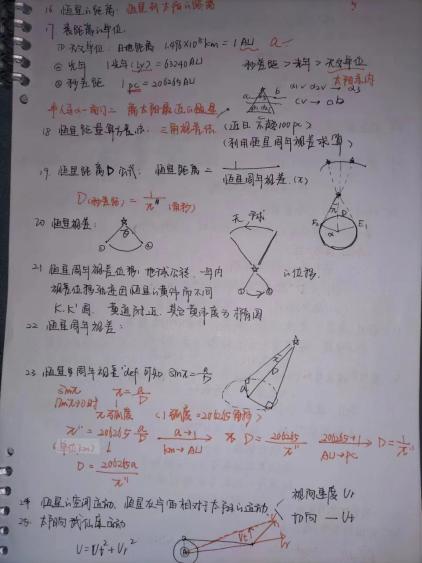 16 恒星的距离: 恒星到太阳的距离
17 表距离的单位:
① 天文单位: 日地距离 1.496×10⁸km = 1AU a
② 光年 1光年(ly) = 63240AU 秒差距 > 光年 > 天文单位
③ 秒差距 1pc = 206265AU 太阳系内
半人马α-南门二 离太阳最近的恒星
18 恒星距离测算方法: 三角视差法 (近日 不超100pc)
(利用恒星周年视差求算)
19. 恒星距离D公式: 恒星距离 = 1/恒星周年视差(π)
D(秒差距) = 1/π″ (角秒)
20 恒星视差: 天球
21 恒星周年视差位移: 地球公转 一年内 的位移.
视差位移轨迹因恒星的黄纬而不同
K.K'圆. 黄道附近. 其它黄纬度为椭圆
22 恒星周年视差:
23 恒星周年视差 def 可知 sinπ = a/D
sinπ π = a/D
π弧度 (1弧度=206265角秒)
π″ = 206265 a/D a→1 km→AU D = 206265/π″ 206265→1 AU→pc D = 1/π″
(单位km)
D = 206265a/π″
24 恒星的空间运动: 恒星在方面相对于太阳的运动 视向速度 Vr
切向 — Vt
25 太阳向武仙座运动
V = Vt² + Vr²